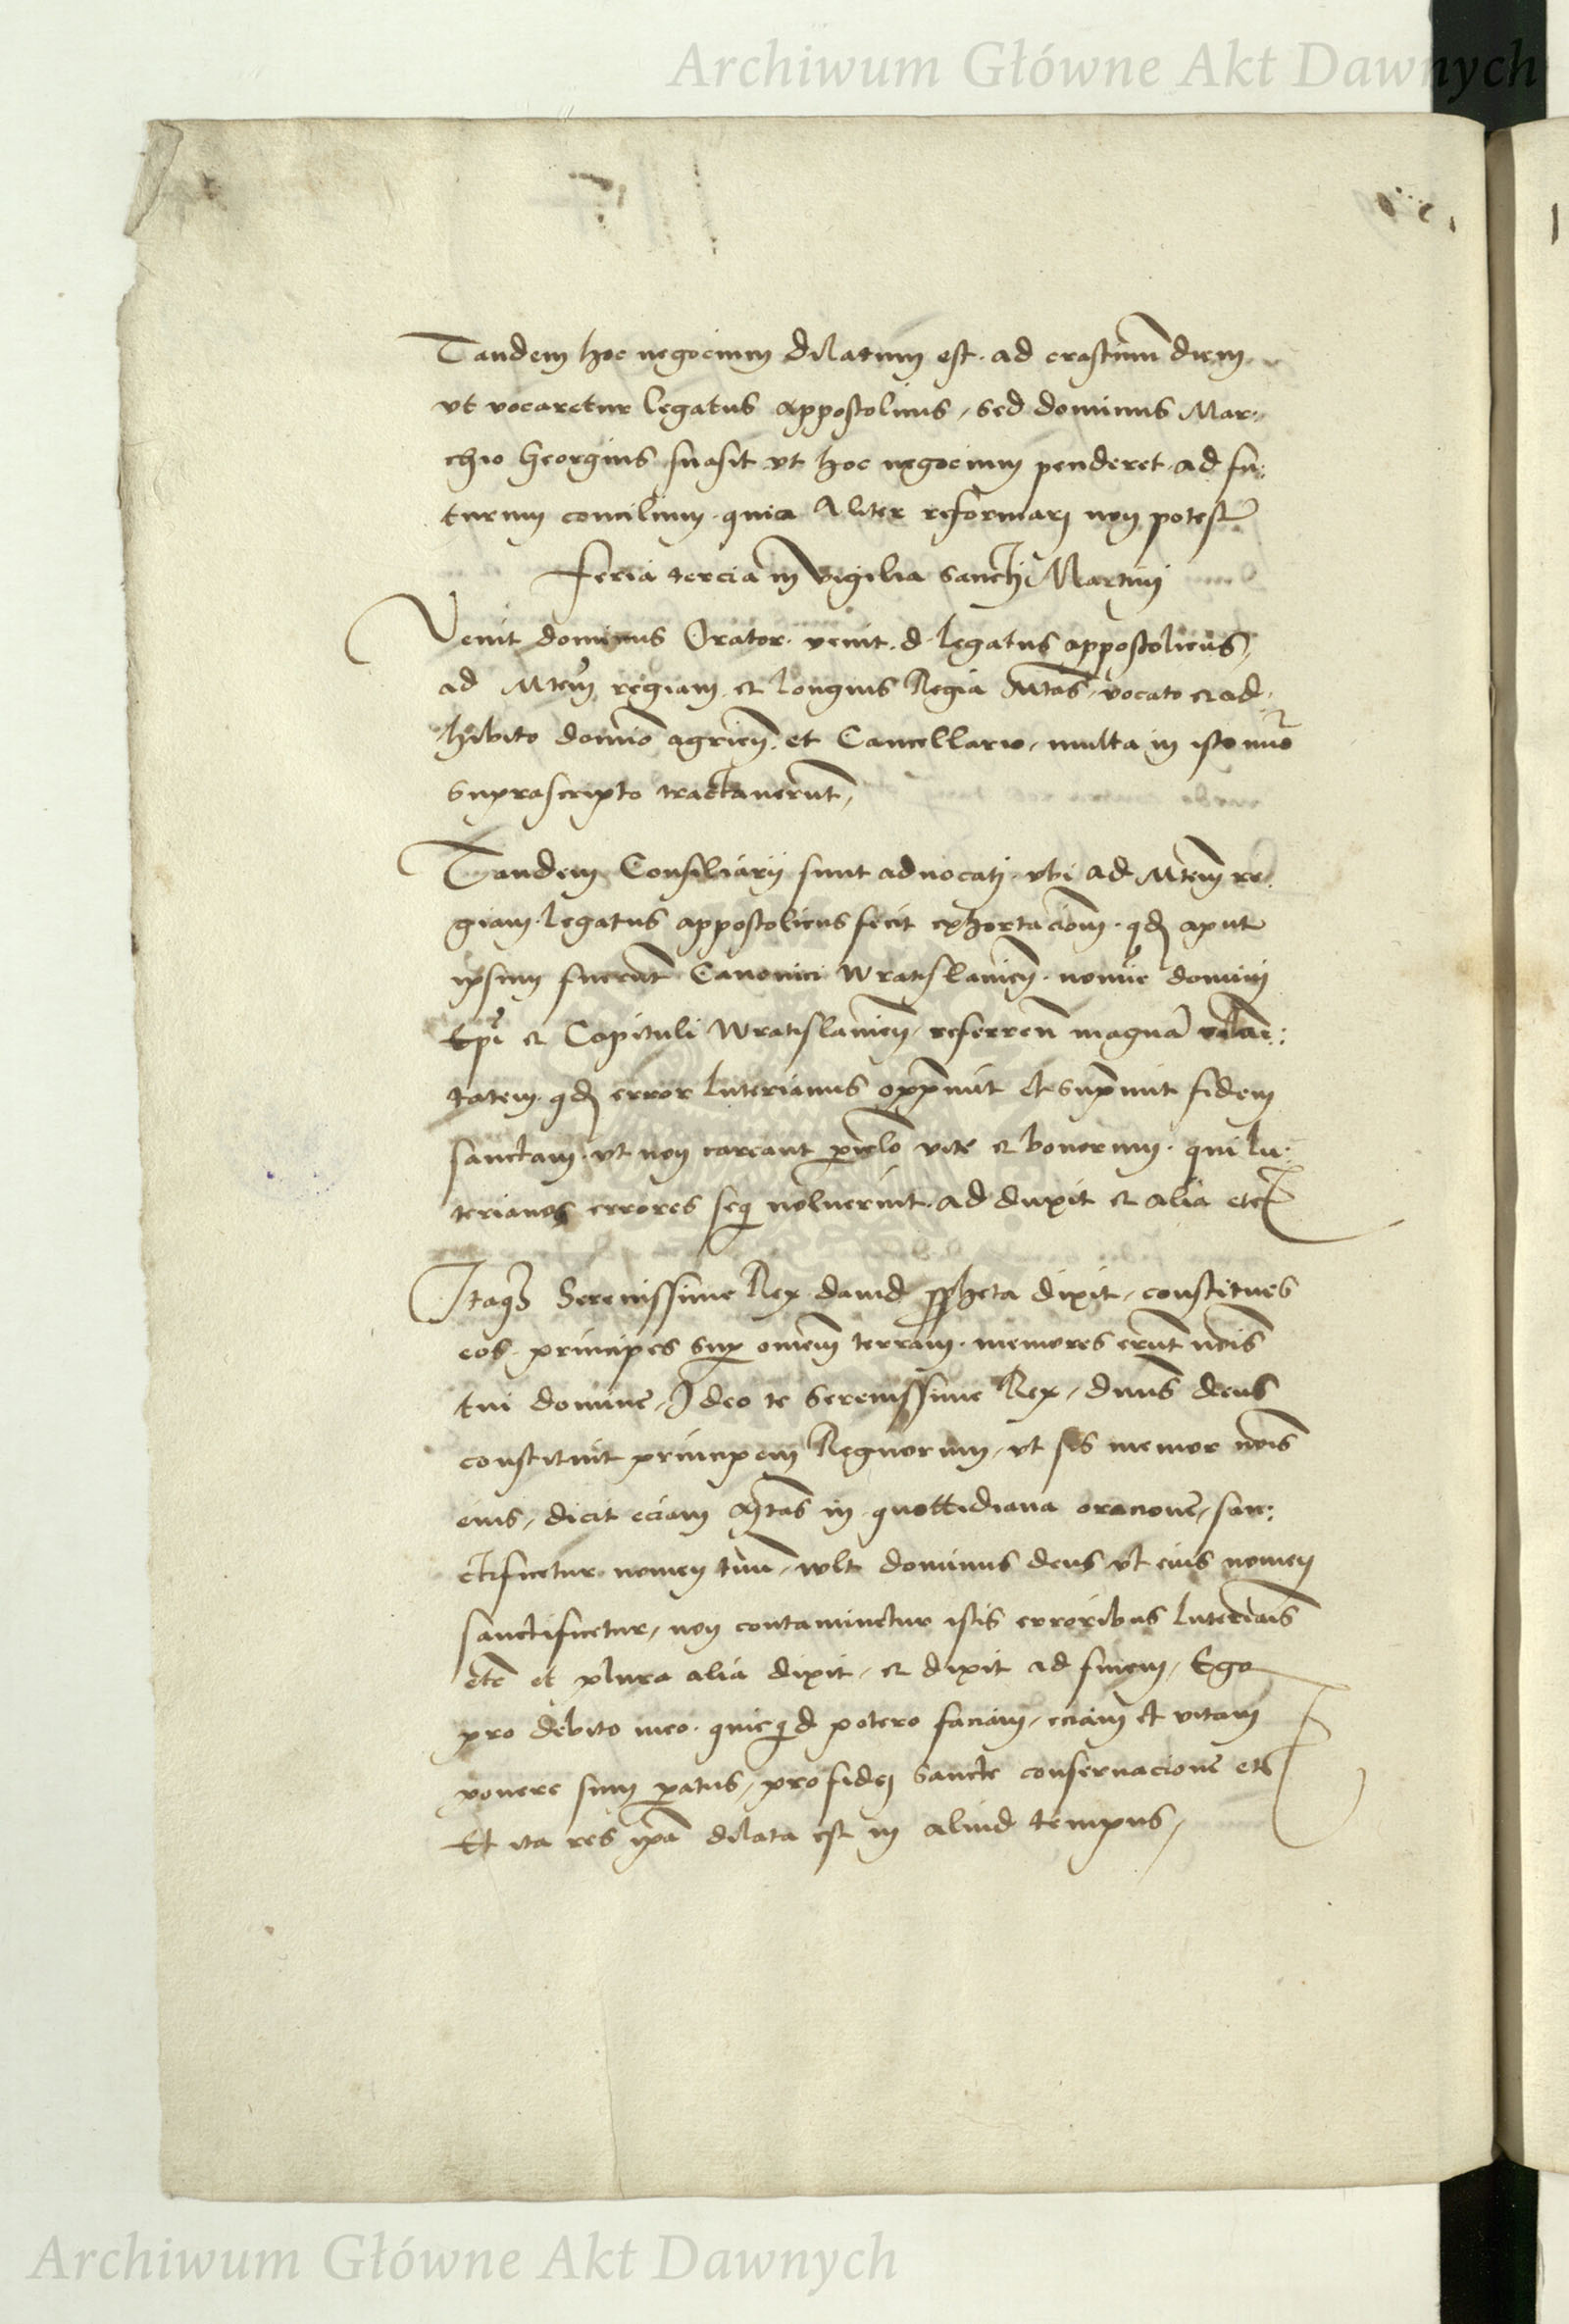 Archiwum Główne Akt Dawnych
Tandem hoc negocium dilatum est. ad crastinum diem
vt vocaretur legatus appostolicus, sed dominus Mar-
chio Georgius suasit vt hoc negocium penderet ad fu:
turum concilium. quia Aliter reformari non potest
Feria tercia in vigilia sancti Martini
Venit dominus Orator. venit. d. legatus appostolicus,
ad Mtem regiam et longius Regia Mtas, vocato et ad:
hibito domino agrien. et Cancellario, multa in isto
suprascripto tractauerunt,
Tandem Consiliarij sunt aduocati. vbi ad Mtem re:
giam legatus appostolicus fecit exhortaciom. qd aput
ipsum fuerunt Canonici Wratislauien. nomie domini
Epi et Capituli Wratislauien, referren magna
tatem. qd error luterianus oppmit et supmit fidem
sanctam. vt non careant piclo vite et bonorum. qui lu:
terianos errores seqi noluerint. ad duxit et alia etc
Itaq Serenissime Rex dauid ppheta dixit, constitues
eos principes sup omem terram. memores erunt nois
tui domine, Ideo te Serenissime Rex, dnus deus
constituit principem Regnorum, vt sis memor nois
eius, dicit eciam Mtas in quottidiana oracione, san:
ctificetur nomen tuu, vult dominus deus vt eius nomen
sanctificetur, non contaminetur istis erroribus luterianis
etc et plura alia dixit, et dixit ad finem, Ego
pro debito meo. quicqd potero faciam, eciam et vitam
ponere sum patus, pro fidei sancte conseruacione etc
Et ita res ipa dilata est in aliud tempus,
Archiwum Główne Akt Dawnych